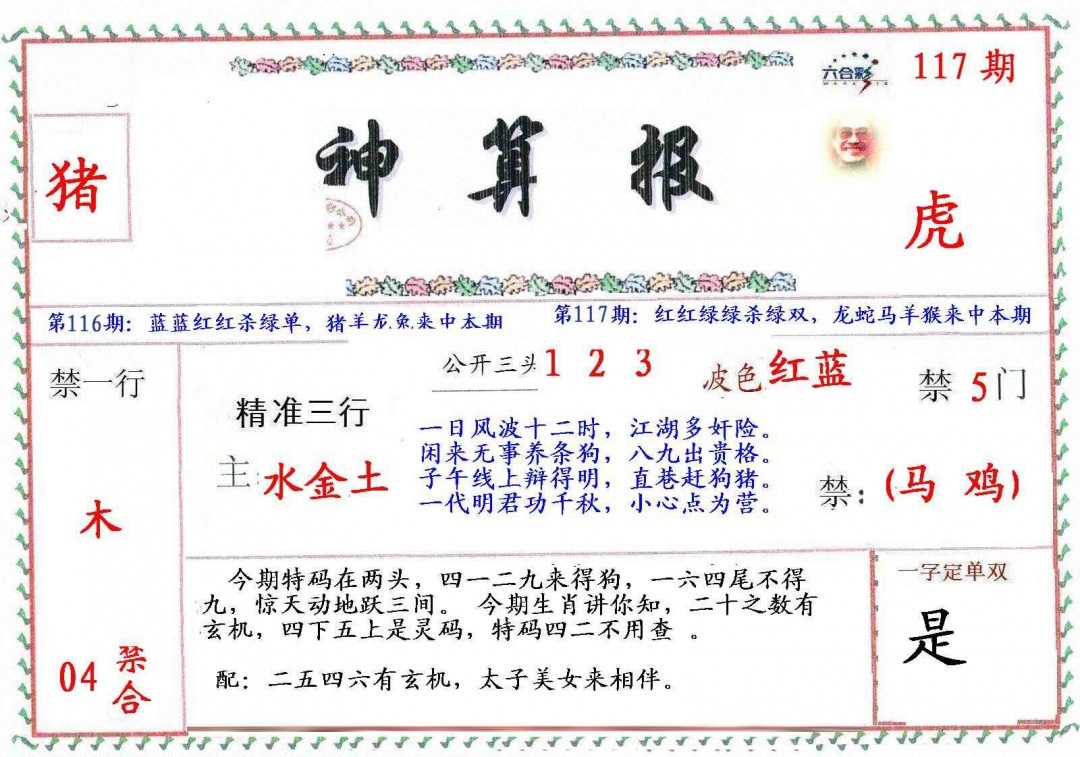 六合彩
117期
神算报
猪
虎
第116期：蓝蓝红红杀绿单，猪羊龙兔来中本期
第117期：红红绿绿杀绿双，龙蛇马羊猴来中本期
禁一行
木
04
禁合
精准三行
主:水金土
公开三头1 2 3
波色红蓝
禁5门
一日风波十二时，江湖多奸险。
闲来无事养条狗，八九出贵格。
子午线上辩得明，直巷赶狗猪。
一代明君功千秋，小心点为营。
禁：(马 鸡)
今期特码在两头，四一二九来得狗，一六四尾不得
九，惊天动地跃三间。 今期生肖讲你知，二十之数有
玄机，四下五上是灵码，特码四二不用查 。
配：二五四六有玄机，太子美女来相伴。
一字定单双
是